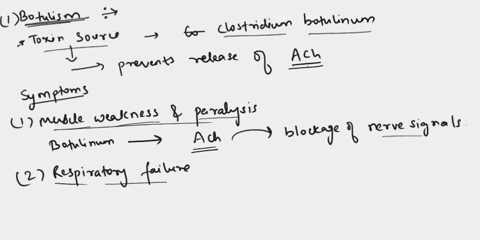 (1) Botulism ÷
* Toxin Source → Clostridium botulinum
→ prevents release of Ach
Symptoms
(1) Muscle weakness & paralysis
Botulinum → Ach → blockage of nerve signals.
(2) Respiratory failure